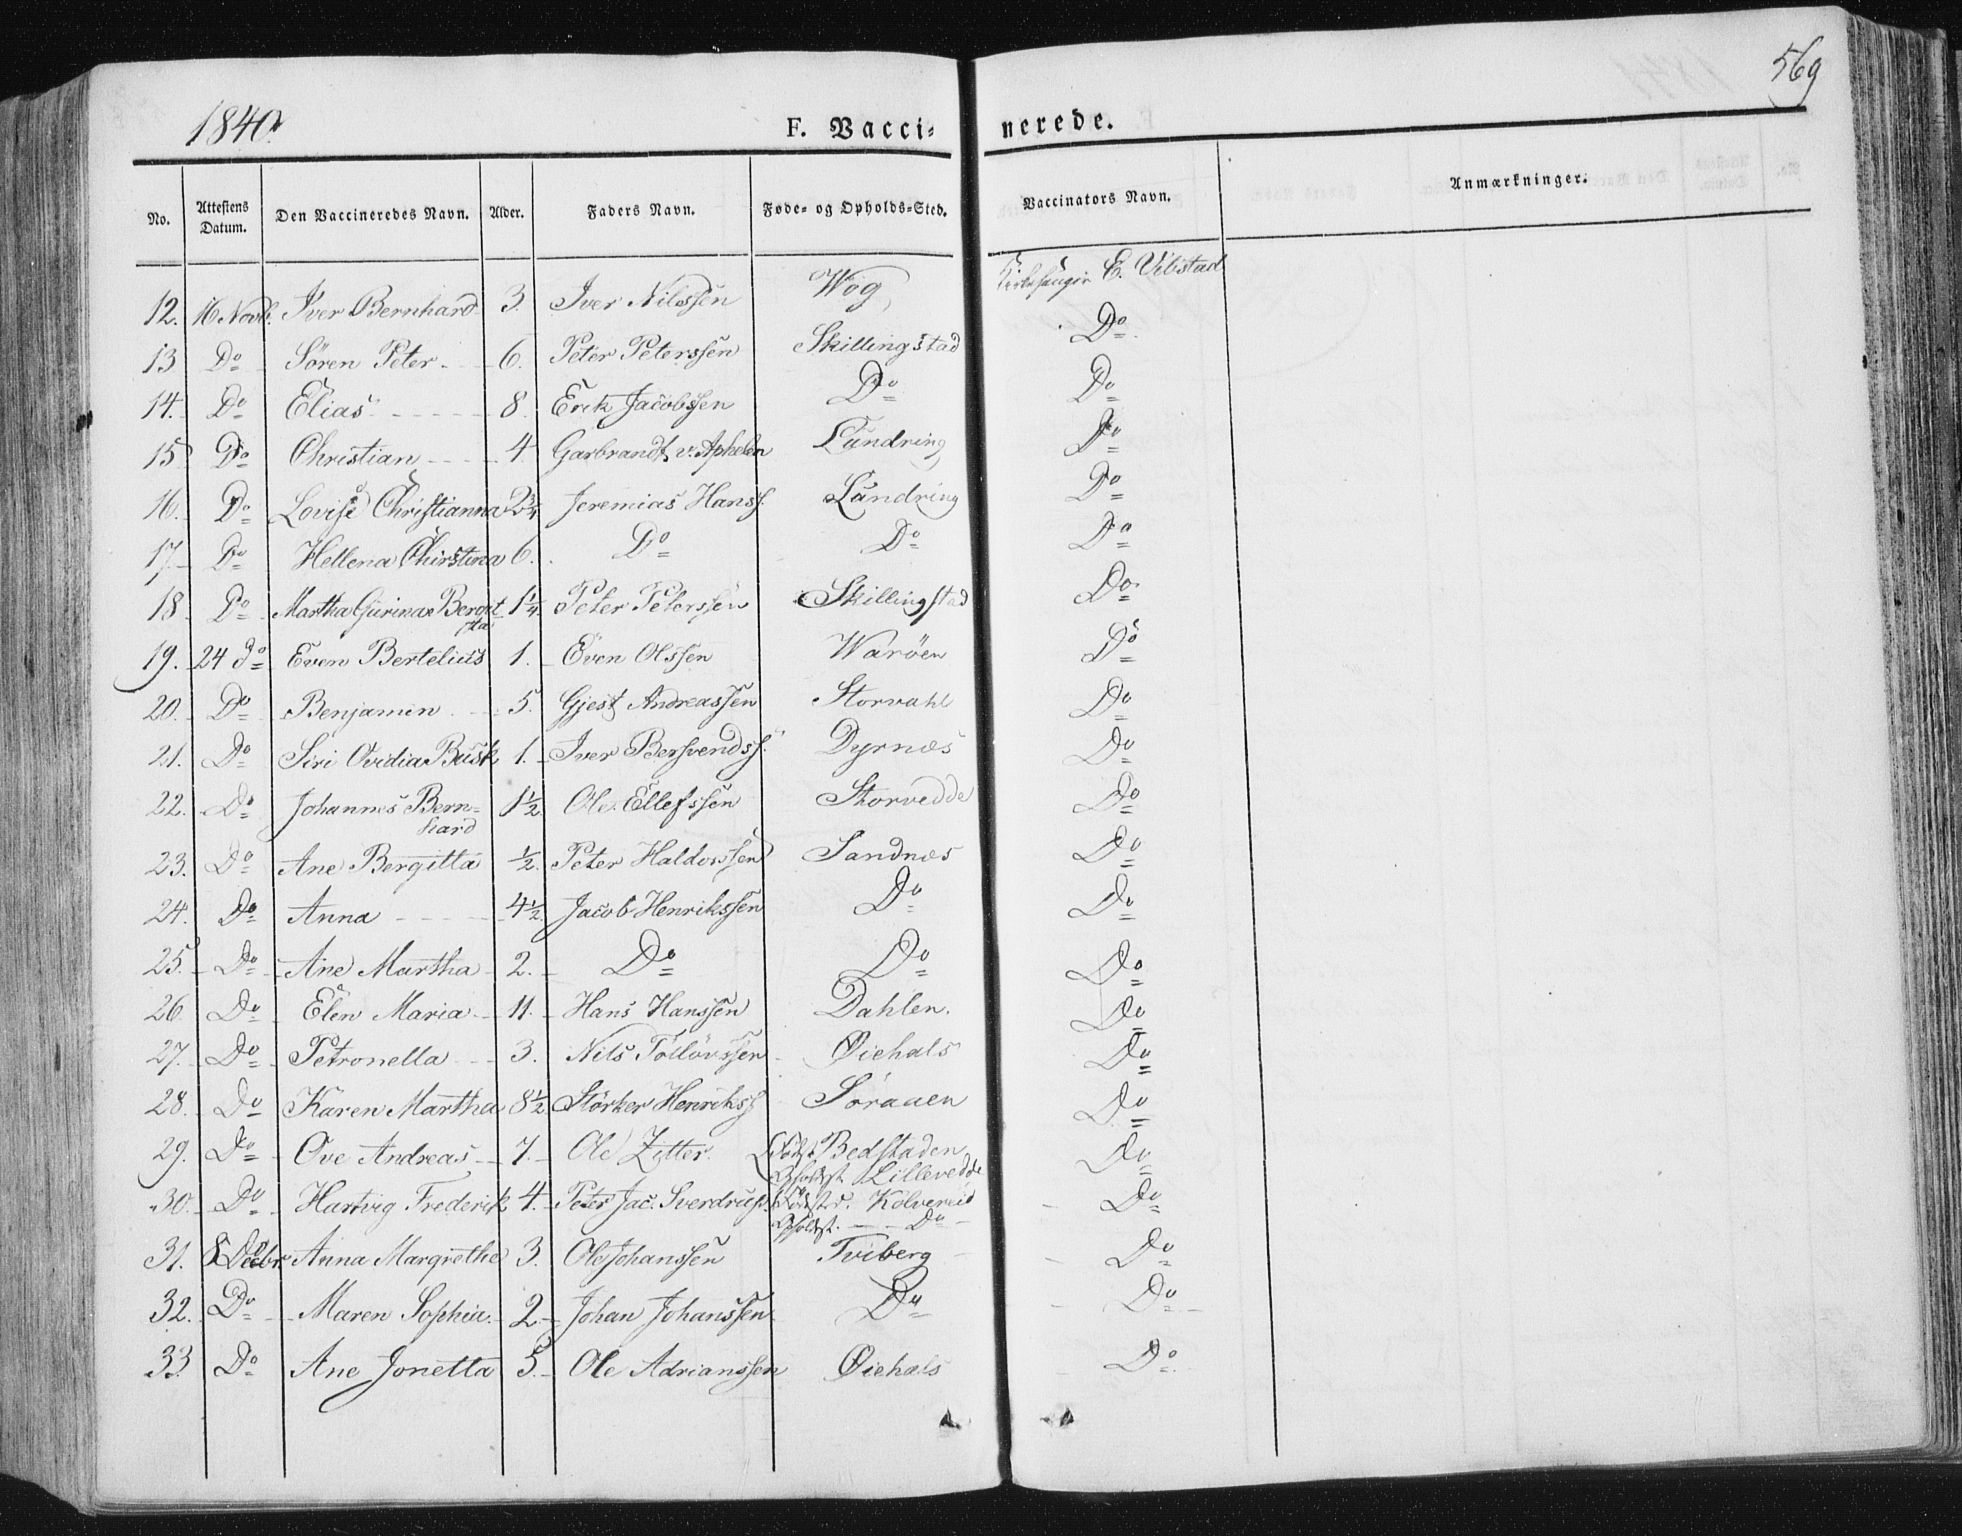 1840.
F. Vacci- nerede.
569
No. Attestens Datum. Den Vaccineredes Navn. Alder. Faders Navn. Føde- og Opholds-Sted. Vaccinators Navn. Anmærkninger.
12. 16 Novb. Iver Bernhard 3. Iver Nilssen Wog Kirkesanger E. Vibstad
13 Do Sören Peter 6. Peter Peterssen Skillingstad Do
14. Do Elias 8. Erik Jacobssen Do Do
15 Do Christian 4. Garbrandt v. Aphelen Lundring Do
16. Do Lovise Christianna 2 3/4 Jeremias Hanss. Lundring Do
17. Do Hellena Chirstina 6. Do Do Do
18 Do Martha Gurina Bergit- 1 1/4. Peter Peterssen Skillingstad Do
ta
19. 24 do Even Bertelius 1. Even Olssen Waröen Do
20. Do Benjamin 5. Gjest Andreassen Storvahl Do
21. Do Siri Ovidia Busk 1. Iver Bersvendss. Dyrnæs Do
22. Do Johannes Bern- 1 1/2 Ole Ellefssen Storvedde Do
hard
23. Do Ane Bergitta 1/2. Peter Haldorssen Sandnæs Do
24. Do Anna 4 1/2. Jacob Henrikssen Do Do
25. Do Ane Martha 2. Do Do Do
26 Do Elen Maria 11. Hans Hanssen Dahlen. Do
27. Do Petronella 3. Nils Tollövssen Øiehals Do
28. Do Karen Martha 8 1/2 Störker Henrikss Søraaen Do
29. Do Ove Andreas 7. Ole Zitter. Fødst. Bedstaden Do
Opholdst. Lillevedde
30. Do Hartvig Frederik 4. Peter Jac. Sverdrup. Fødested. Kolvereid Do
Opholdst. Do
31. 8 Decbr Anna Margrethe 3. Ole Johanssen Tviberg Do
32. Do Maren Sophia. 2. Johan Johanssen Do Do
33. Do Ane Jonetta 5. Ole Adrianssen Øiehals Do